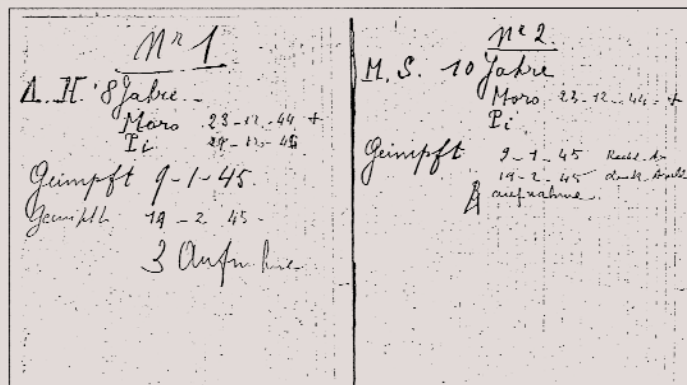 Nr 1
A. H. 8 Jahre.
Moro 23-12-44 +
Pi
Geimpft 9-1-45.
Geimpft 19-2 45-
3 Aufnahme
Nr 2.
M. S. 10 Jahre
Moro 23-12-44 +
Pi.
Geimpft 9-1-45
19-2-45
aufnahme.